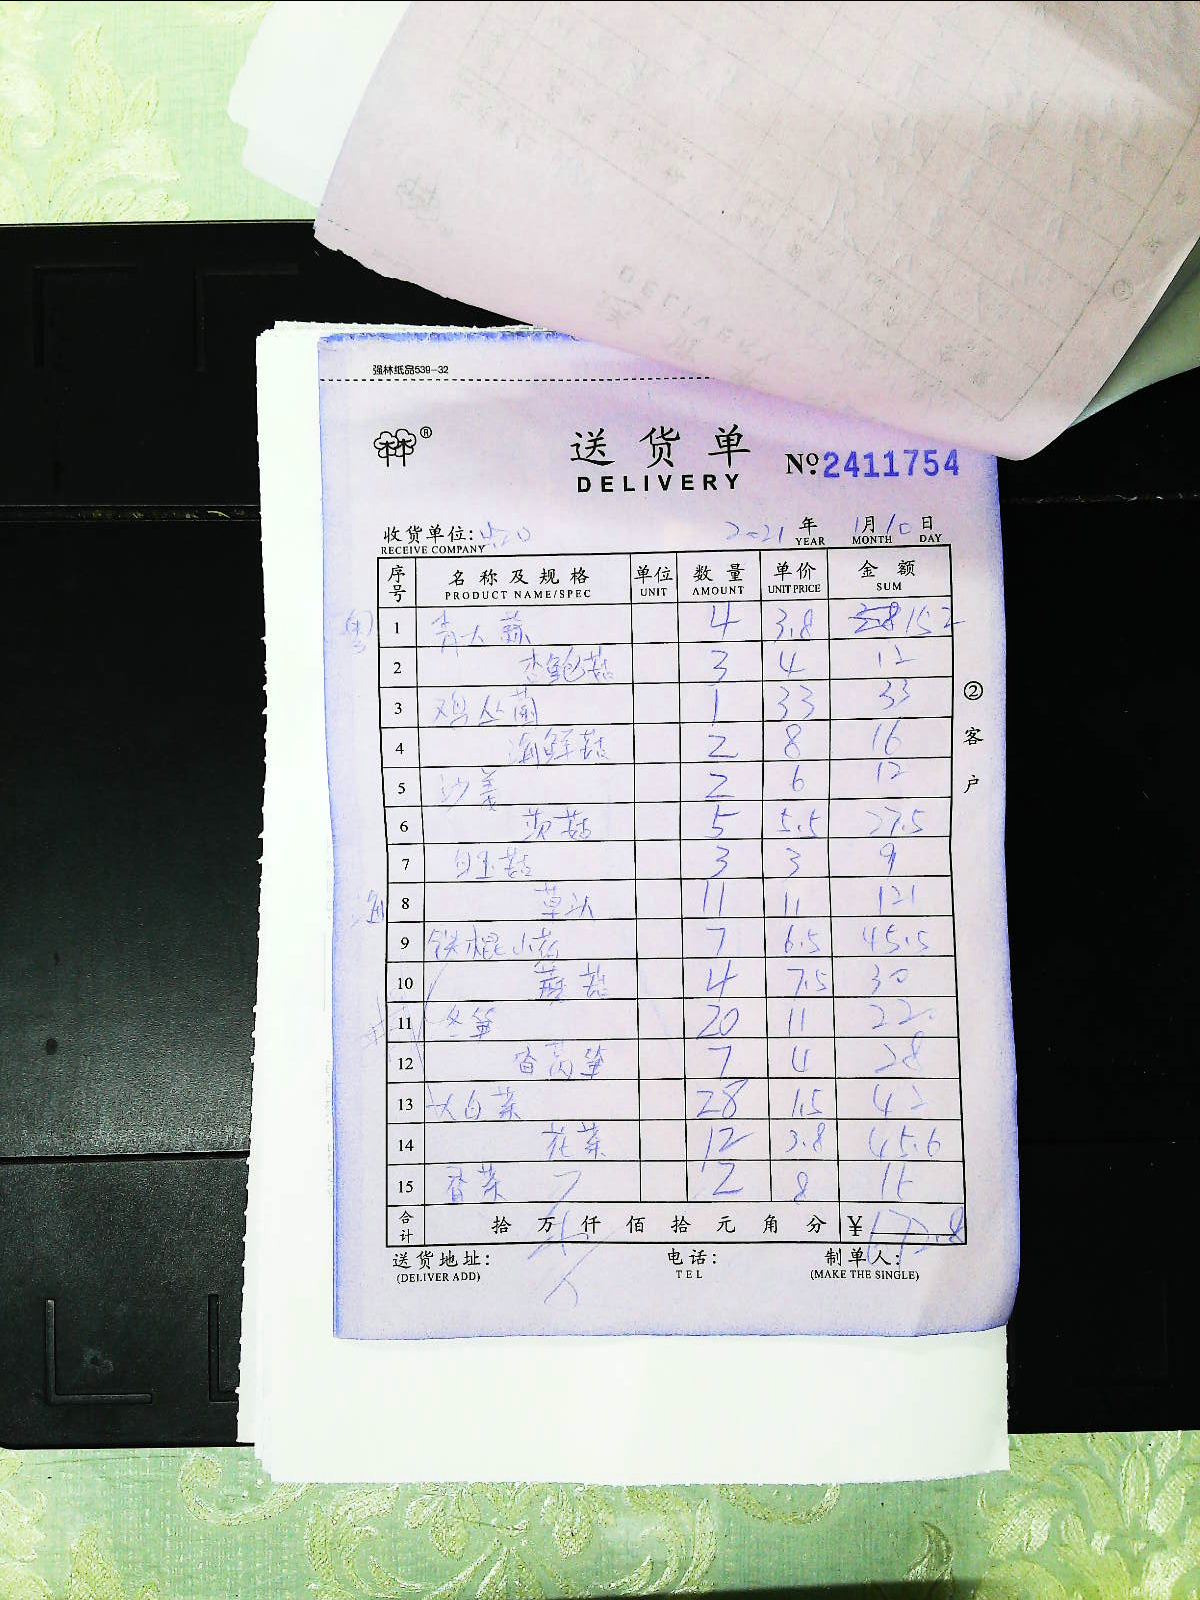 强林纸品539-32
林林 ®
送货单 № 2411754
DELIVERY
收货单位: 2021 年 1 月 10 日
RECEIVE COMPANY YEAR MONTH DAY
序号 名称及规格 单位 数量 单价 金额
PRODUCT NAME/SPEC UNIT AMOUNT UNIT PRICE SUM
1 青大蒜 4 3.8 15.2
2 杏鲍菇 3 4 12
3 鸡丛菌 1 33 33
4 海鲜菇 2 8 16
5 沙姜 2 6 12
6 茨菇 5 5.5 27.5
7 白玉菇 3 3 9
8 草头 11 11 121
9 铁棍山药 7 6.5 45.5
10 蘑菇 4 7.5 30
11 冬笋 20 11 220
12 香莴笋 7 4 28
13 大白菜 28 1.5 42
14 花菜 12 3.8 45.6
15 香菜 2 8 16
合计 拾万仟佰拾元角分 ¥
送货地址: 电话: 制单人:
(DELIVER ADD) TEL (MAKE THE SINGLE)
②客户